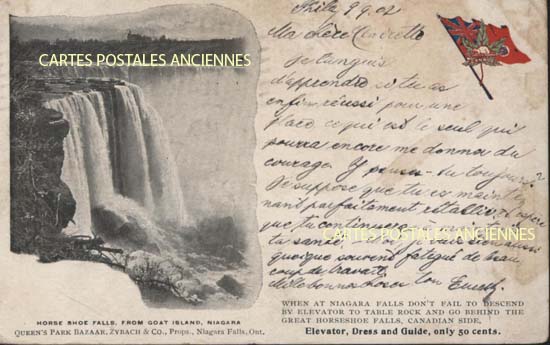 Phila 9 9 02
Ma chère
Je languis
d'apprendre si tu as
enfin réussi pour une
place ce qui est le seul qui
pourra encore me donner du
courage. Y penses-tu toujours?
Je suppose que tu es mainte-
nant parfaitement rétablie
que tu
ta santé
quoique souvent fatigué de beau
coup de travail
ton
CARTES POSTALES ANCIENNES
CARTES POSTALES ANCIENNES
HORSE SHOE FALLS, FROM GOAT ISLAND, NIAGARA
QUEEN'S PARK BAZAAR, ZYBACH & CO., Props., Niagara Falls, Ont.
WHEN AT NIAGARA FALLS DON'T FAIL TO DESCEND
BY ELEVATOR TO TABLE ROCK AND GO BEHIND THE
GREAT HORSESHOE FALLS, CANADIAN SIDE,
Elevator, Dress and Guide, only 50 cents.